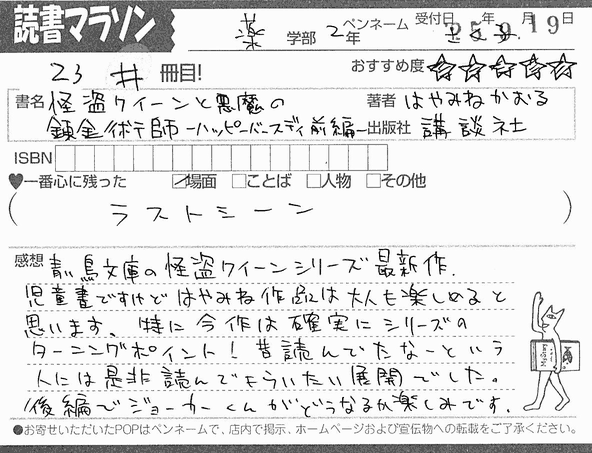 読書マラソン
薬 学部 2年
ペンネーム
受付日 25年9月19日
23 冊目!
おすすめ度 ☆☆☆☆☆
書名 怪盗クイーンと悪魔の
錬金術師-ハッピーバースデイ前編-
著者 はやみねかおる
出版社 講談社
ISBN
♥一番心に残った □場面 □ことば □人物 □その他
( ラストシーン )
感想 青い鳥文庫の怪盗クイーンシリーズ最新作.
児童書ですけどはやみね作品は大人も楽しめると
思います、特に今作は確実にシリーズの
ターニングポイント!昔読んでたなーという
人には是非読んでもらいたい展開でした。
後編でジョーカーくんがどうなるか楽しみです.
●お寄せいただいたPOPはペンネームで、店内で掲示、ホームページおよび宣伝物への転載をご了承ください。